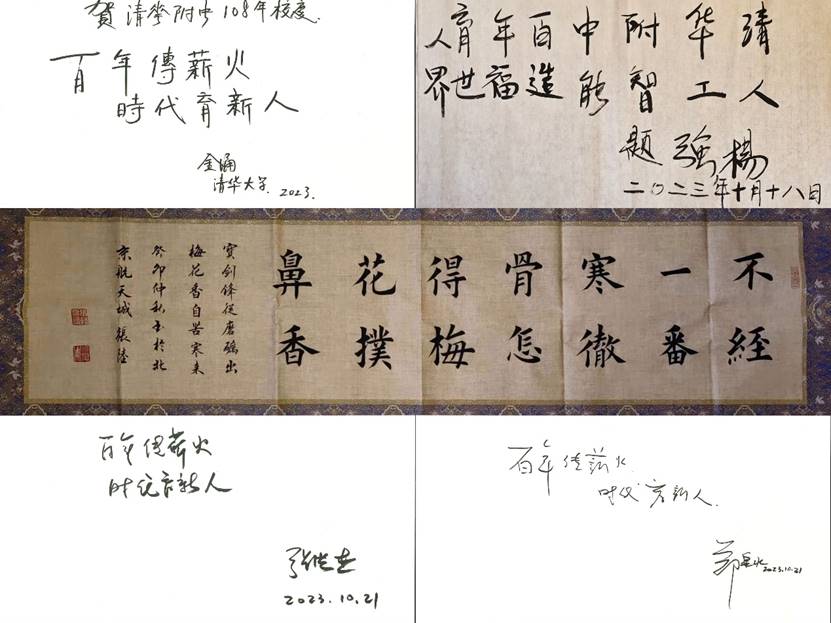 贺 清華附中108年校慶.
百年傳薪火
時代育新人
金涌
清华大学 2023.
清华附中百年育人
人工智能造福世界
楊强題
二〇二三年十月十八日
不經
一番
寒徹
骨怎
得梅
花撲
鼻香
寶劍鋒從磨礪出
梅花香自苦寒来
癸卯仲秋书於北
京航天城張陸
百年传薪火
时代育新人
2023.10.21
百年传薪火.
时代育新人.
郑 2023.10.21